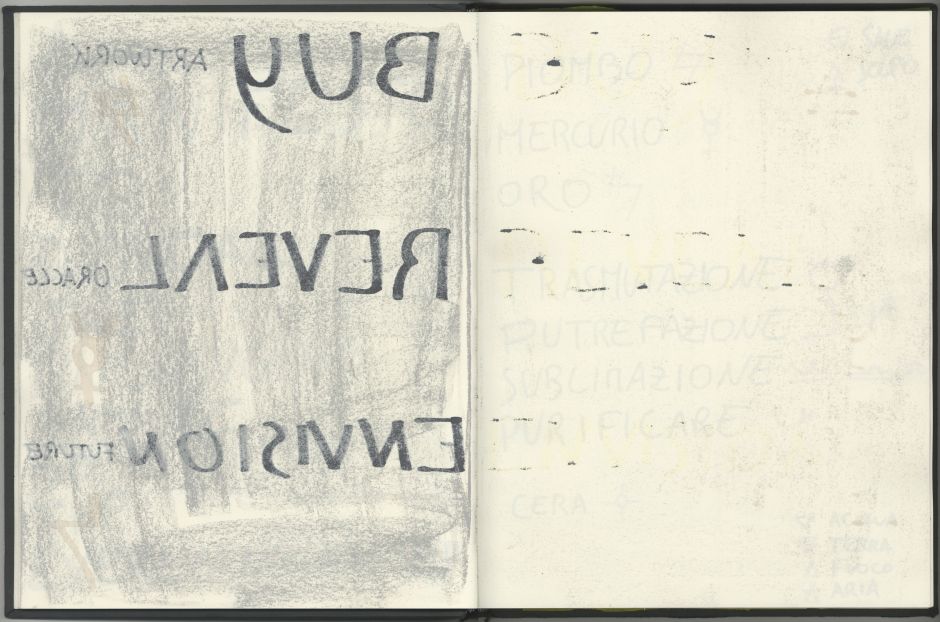 BUY ARTWORK
REVEAL ORACLE
ENVISION FUTURE
PIOMBO
MERCURIO
ORO
TRASMUTAZIONE
PUTREFAZIONE
SUBLIMAZIONE
PURIFICARE
CERA
SALE
ACQUA
TERRA
FUOCO
ARIA